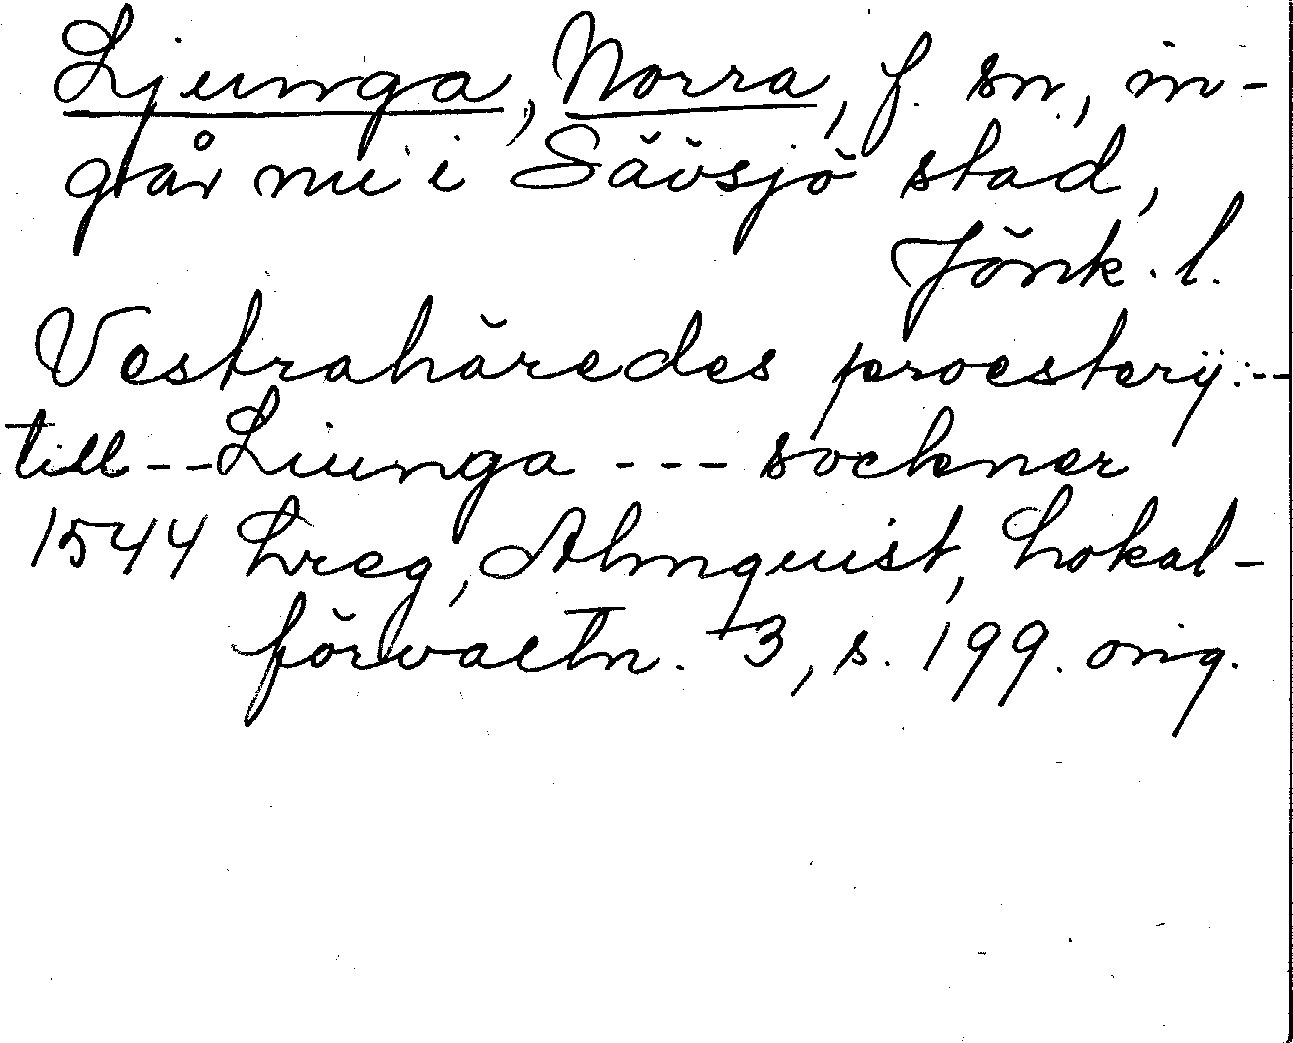 Ljunga, Norra, f. sn, in-
går nu i Sävsjö stad,
Jönk. l.
Vestrahäredes proesterij:--
till -- Liunga --- sockner
1544 Lreg, Almquist, Lokal-
förvaltn. 3, s. 199. orig.